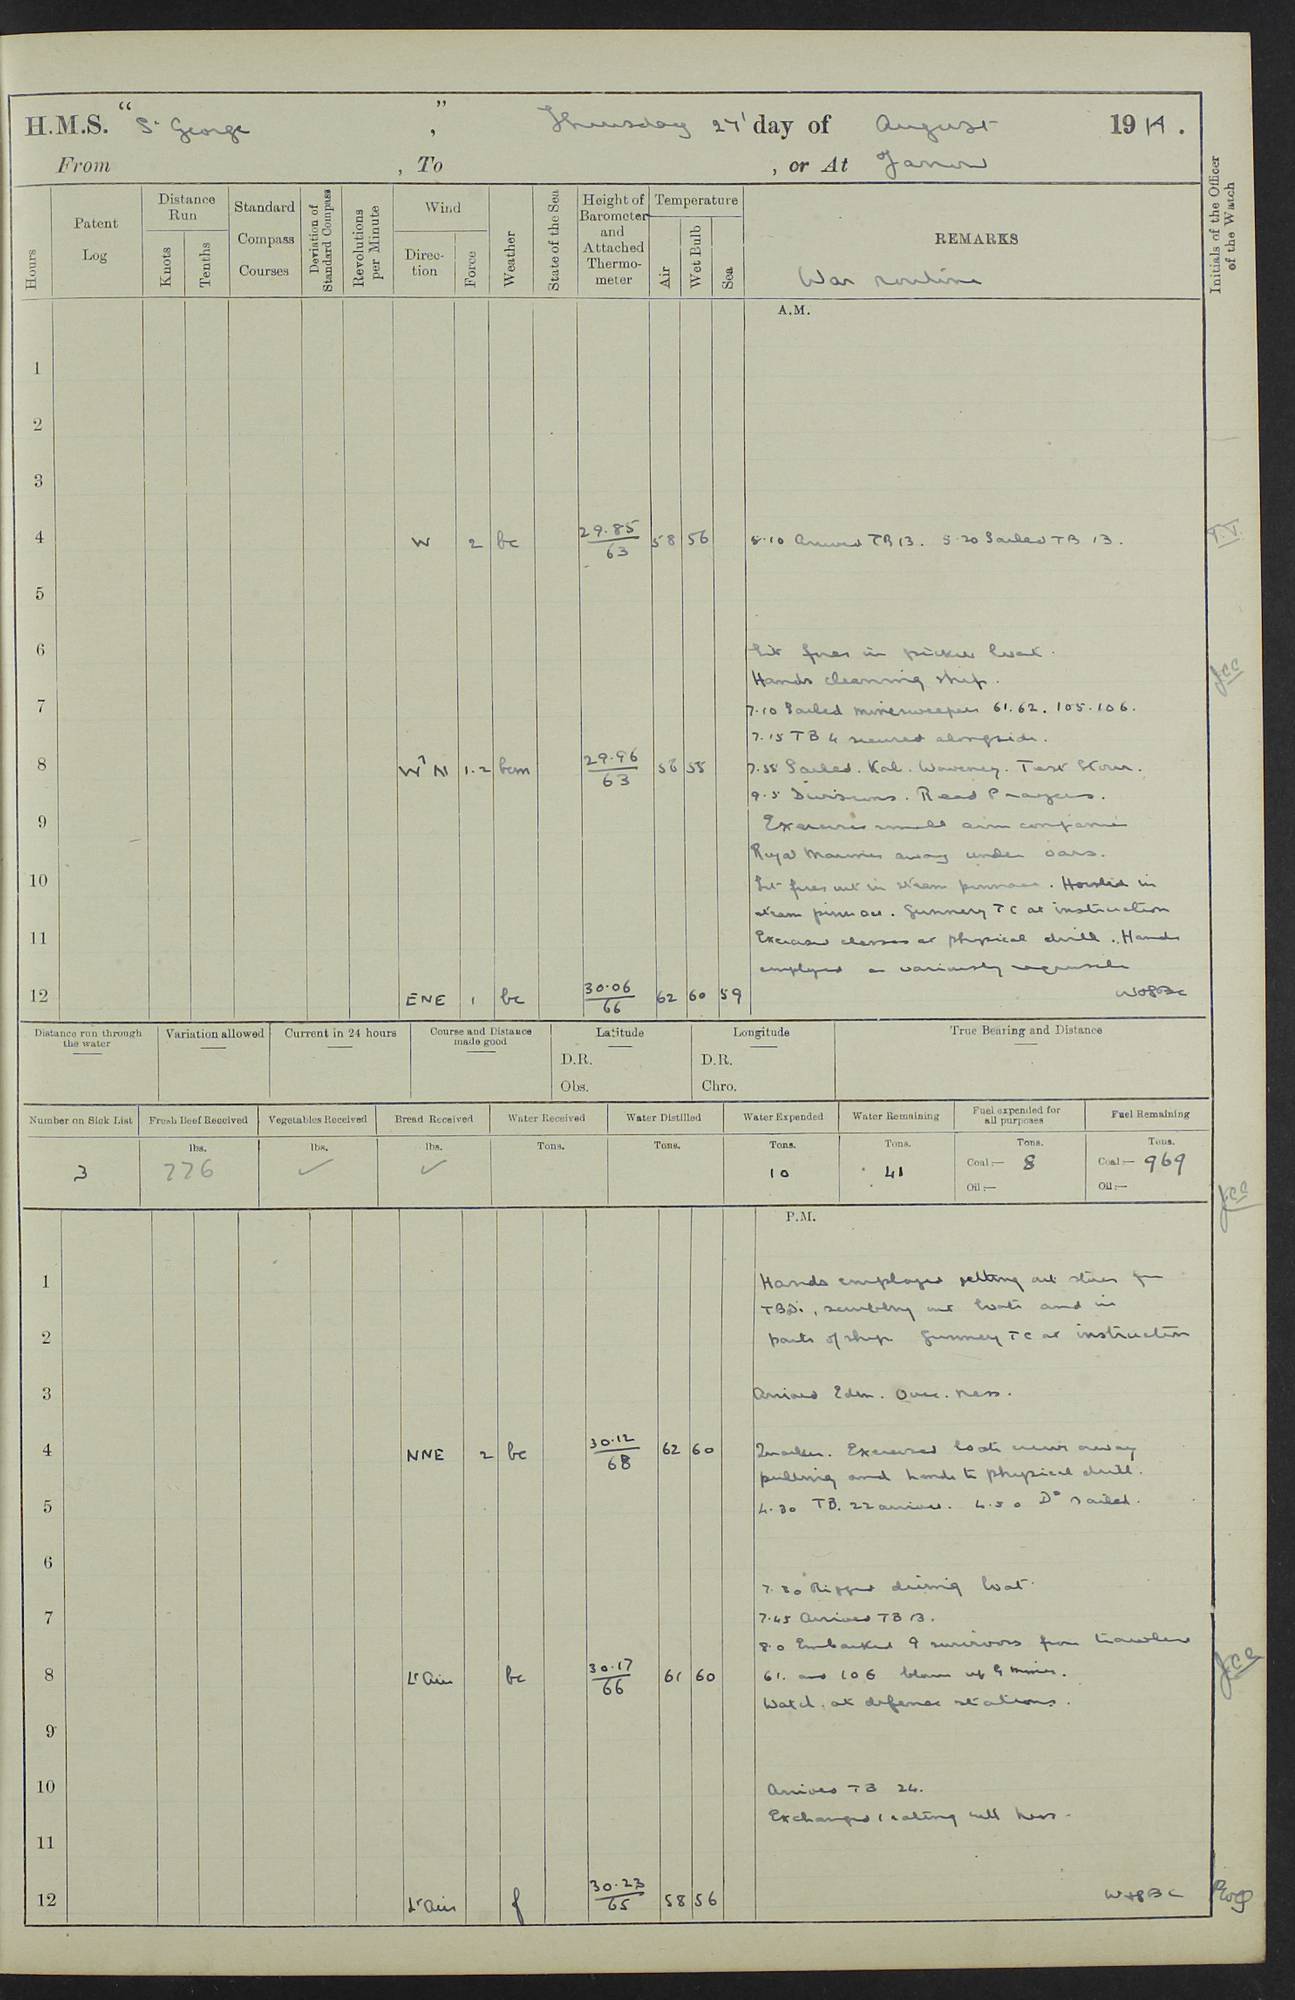 H.M.S. "St George", Thursday 27 day of August 1914.
From , To , or At Jarrow
Hours
Patent Log
Distance Run
Knots
Tenths
Standard Compass Courses
Deviation of Standard Compass
Revolutions per Minute
Wind
Direction
Force
Weather
State of the Sea
Height of Barometer and Attached Thermometer
Temperature
Air
Wet Bulb
Sea
REMARKS
War routine
Initials of the Officer of the Watch
A.M.
1
2
3
4 W 2 bc 29.85/63 58 56 5.10 Arrived TB 13. 5.20 Sailed TB 13. T.T.
5
6 Lit fires in picket boat.
Hands cleaning ship. JCC
7 7.10 Sailed minesweepers 61. 62. 105. 106.
7.15 TB 4 secured alongside.
8 W'N 1.2 bcm 29.96/63 56 55 7.55 Sailed. Kale. Waveney. Test Stour.
9.5 Divisions. Read Prayers.
9 Exercised small arm companies
Royal Marines away under oars.
10 Let fires out in steam pinnace. Hoisted in
steam pinnace. Gunnery TC at instruction
11 Exercised classes at physical drill. Hands
employed as variously requisite
12 ENE 1 bc 30.06/66 62 60 59
Distance run through the water
Variation allowed
Current in 24 hours
Course and Distance made good
Latitude
D.R.
Obs.
Longitude
D.R.
Chro.
True Bearing and Distance
Number on Sick List
Fresh Beef Received
Vegetables Received
Bread Received
Water Received
Water Distilled
Water Expended
Water Remaining
Fuel expended for all purposes
Fuel Remaining
lbs. lbs. lbs. Tons. Tons. Tons. Tons. Tons. Tons.
3 226 ✓ ✓ 10 41 Coal:— 8 Coal:— 969
Oil:— Oil:—
JCC
P.M.
1 Hands employed getting out stores for
TBDs., scrubbing out boats and in
2 parts of ship Gunnery TC at instruction
3 Arrived Eden. Ouse. Ness.
4 NNE 2 bc 30.12/68 62 60 Quarters. Exercised boats crews away
pulling and hands to physical drill.
5 4.30 TB. 22 arrived. 4.50 Do sailed.
6
7.30 Rigged diving boat.
7 7.45 Arrived TB 13.
8.0 Embarked 9 survivors from trawlers
8 Lt Airs bc 30.17/66 61 60 61. and 106 blown up by mines. JCC
Watch at defence stations.
9
10 Arrived TB 24.
Exchanged 1 rating with Ness.
11
12 Lt Airs f 30.23/65 58 56